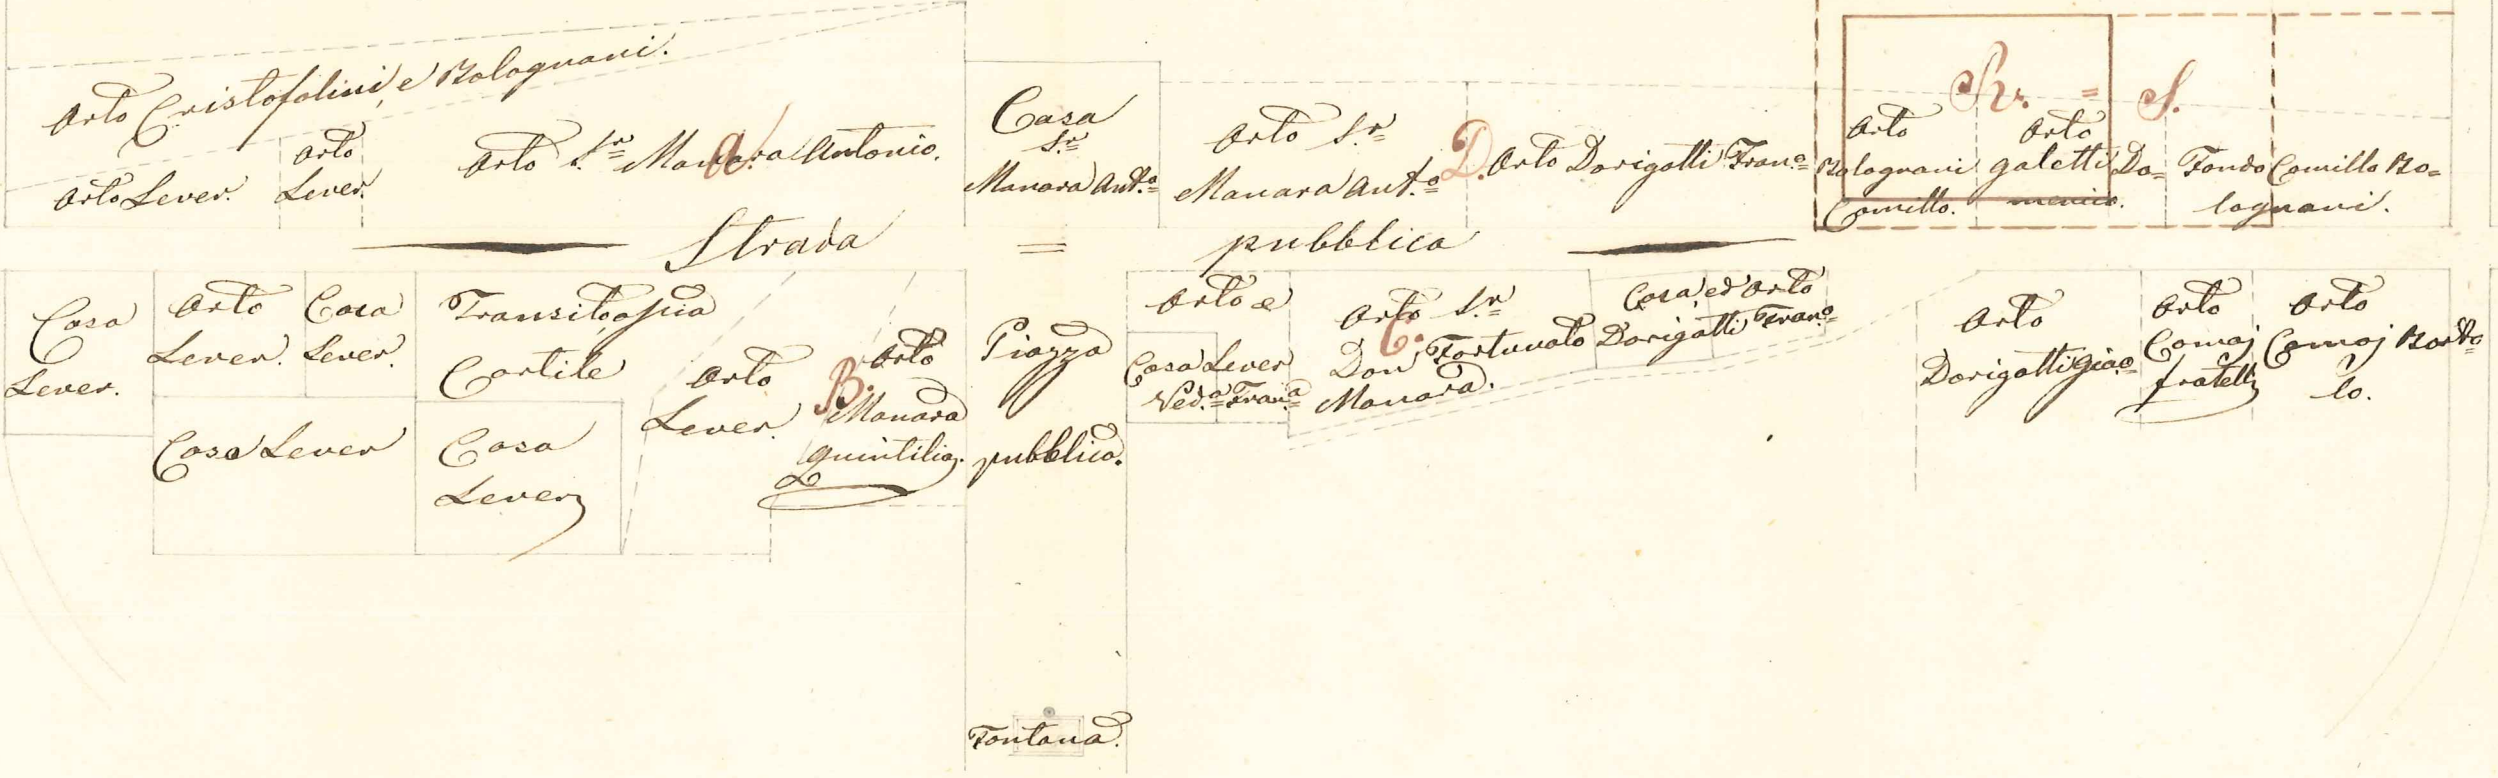 Orto Cristofolini e Bolognani.
Orto Lever.
Orto
Lever.
Orto S.r Manara Antonio.
a.
Casa
S.r
Manara Ant.o
Orto S.r
Manara Ant.o
D.
Orto Dorigatti Fran.o
R. = S.
Orto
Bolognani
Camillo.
Orto
galetti Do=
menico.
Fondo Camillo Bo=
lognani.
Strada = pubblica
Casa
Lever.
Orto
Lever.
Casa
Lever.
Casa Lever
Transito, ossia
Cortile
Casa
Lever
Orto
Lever.
B.
Orto
Manara
quintilio.
Piazza
pubblica.
Fontana.
Orto e
Casa Lever
Ved.a Fran.a
C.
Orto S.r
Don Fortunato
Manara.
Casa ed Orto
Dorigatti Fran.o
Orto
Dorigatti Giac.o
Orto
Comaj
fratelli
Orto
Comaj Borto=
lo.